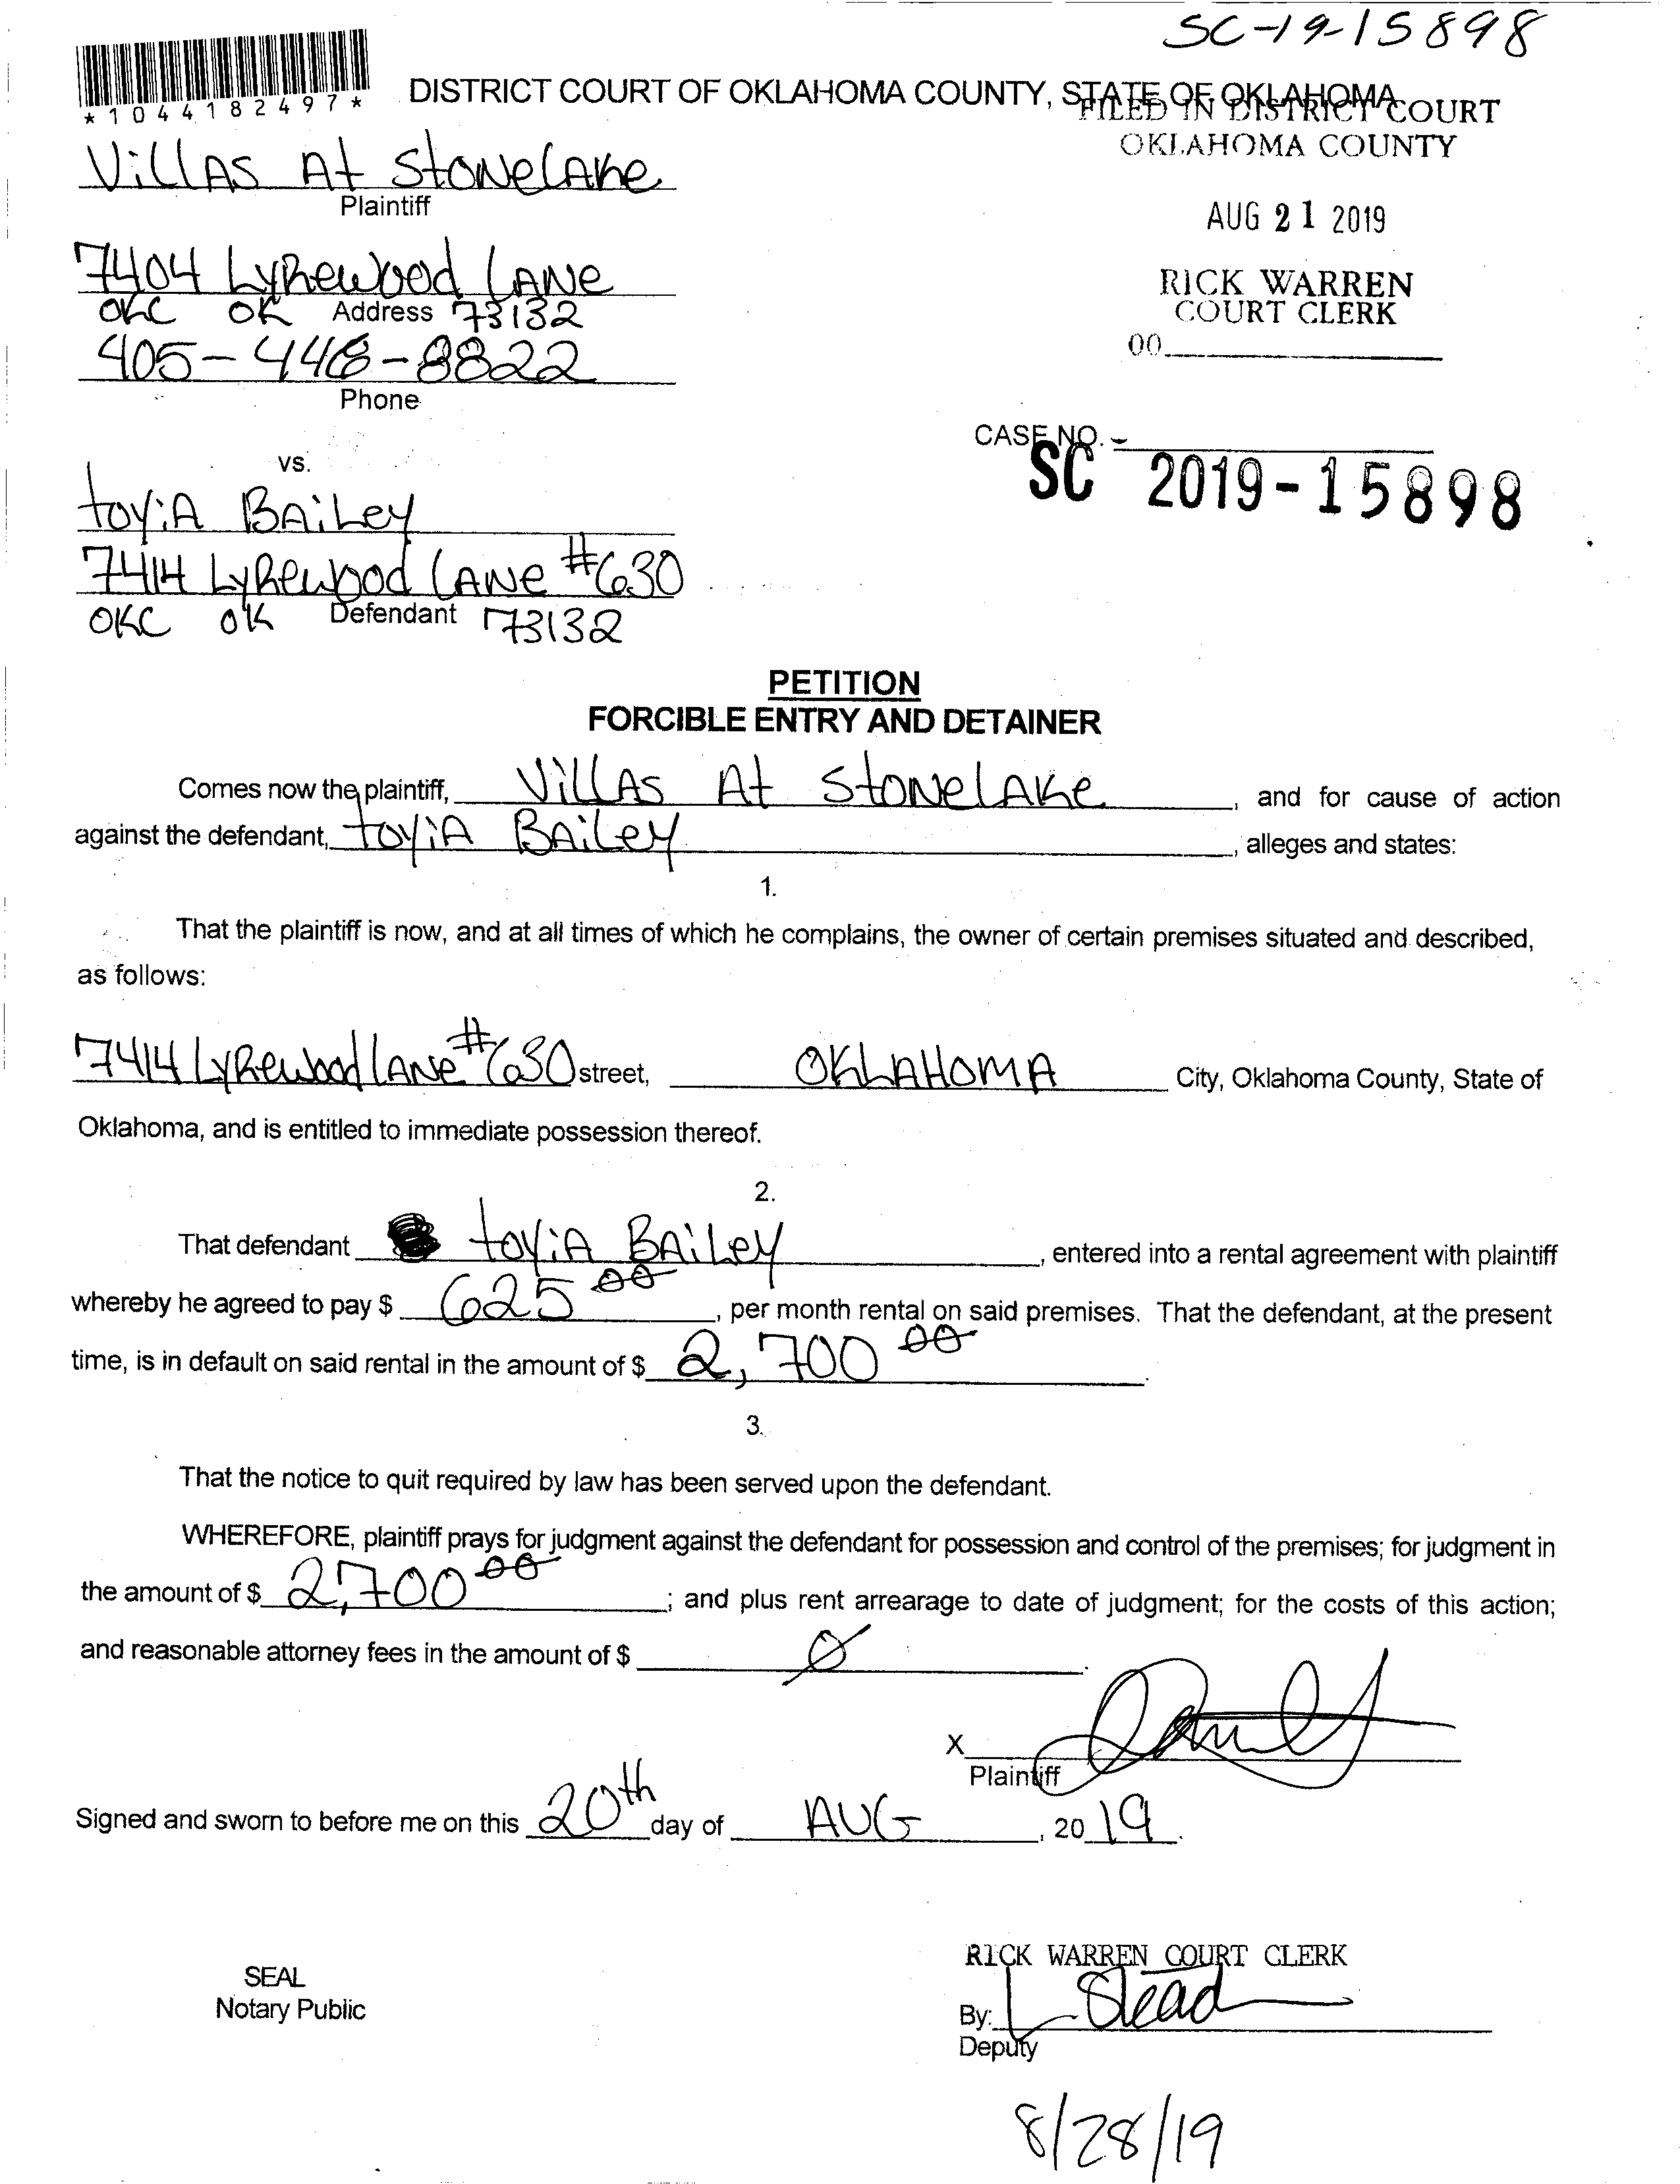 SC-19-15898
*1044182497*
DISTRICT COURT OF OKLAHOMA COUNTY, STATE OF OKLAHOMA
FILED IN DISTRICT COURT
OKLAHOMA COUNTY
VillAS At StoNelAke
Plaintiff
AUG 21 2019
7404 LyRewood LANE
RICK WARREN
COURT CLERK
OKC OK Address 73132
00
405-448-8822
Phone
CASE NO.
SC 2019-15898
vs.
toyiA BAiLey
7414 LyRewood LANe #630
OKC OK Defendant 73132
PETITION
FORCIBLE ENTRY AND DETAINER
Comes now the plaintiff, VillAS At StoNelAke, and for cause of action
against the defendant, toyiA BAiLey, alleges and states:
1.
That the plaintiff is now, and at all times of which he complains, the owner of certain premises situated and described,
as follows:
7414 LyRewood lANe #630 street, OKLAHOMA City, Oklahoma County, State of
Oklahoma, and is entitled to immediate possession thereof.
2.
That defendant toyiA BAiLey, entered into a rental agreement with plaintiff
whereby he agreed to pay $ 625 00, per month rental on said premises. That the defendant, at the present
time, is in default on said rental in the amount of $ 2,700 00.
3.
That the notice to quit required by law has been served upon the defendant.
WHEREFORE, plaintiff prays for judgment against the defendant for possession and control of the premises; for judgment in
the amount of $ 2,700 00; and plus rent arrearage to date of judgment; for the costs of this action;
and reasonable attorney fees in the amount of $ Ø.
X
Plaintiff
Signed and sworn to before me on this 20th day of AUG, 2019.
RICK WARREN COURT CLERK
SEAL
Notary Public
By: L Stead
Deputy
8/28/19